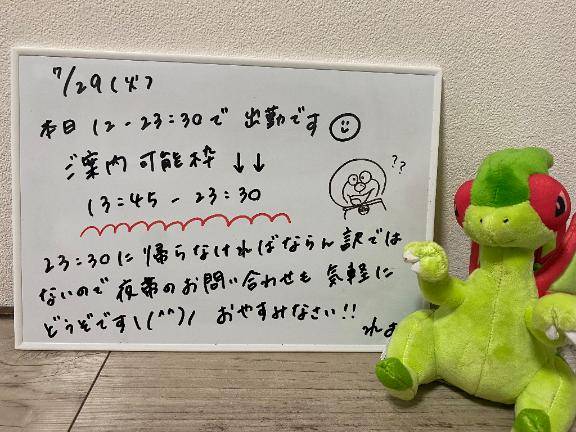 7/29(火)
本日 12-23:30で 出勤です
ご案内可能枠 ↓↓
13:45 - 23:30
??
23:30に帰らなければならん訳では
ないので 夜帯のお問い合わせも 気軽に
どうぞです\(^^)/ おやすみなさい!!